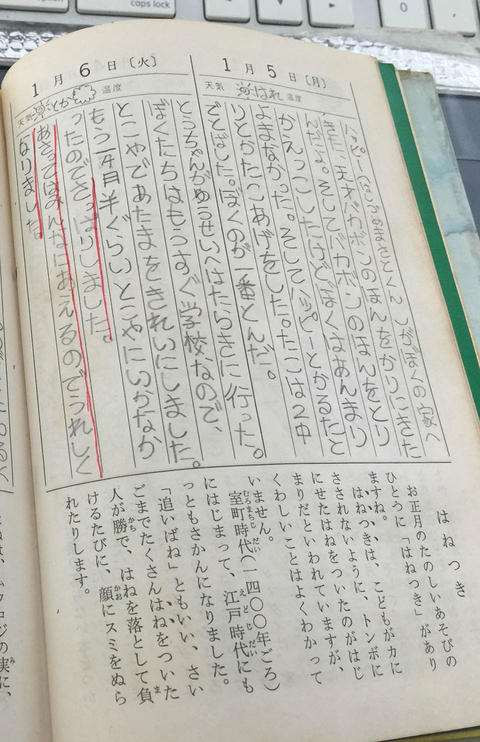 caps lock
1月5日(月)
天気 はれ 温度
ハッピー(はしらまさとくん)がぼくの家へ
きた。天才バカボンのほんをかりにきた
んだよ。そしてバカボンのほんをとり
かえっこしたけどぼくはあんまり
よまなかった。そしてハッピーとかるたと
りとかたこあげをした。たこは2中
でとばした。ぼくのが一番とんだ。
とうちゃんがゆうせいへはたらきに行った。
1月6日(火)
天気 とか 温度
ぼくたちはもうすぐ学校なので、
とこやであたまをきれいにしました。
もう一ヶ月半ぐらいとこやにいかなか
ったのでさっぱりしました。
あさってはみんなにあえるのでうれしく
なりました。
はねつき
お正月のたのしいあそびの
ひとうに「はねつき」があり
ますね。
はねつきは、こどもがカに
さされないように、トンボに
にせたはねをついたのがはじ
まりだといわれていますが、
くわしいことはよくわかって
いません。
室町時代(一四〇〇年ごろ)
にはじまって、江戸時代にも
っともさかんになりました。
「追いばね」ともいい、さい
ごまでたくさんはねをついた
人が勝で、はねを落として負
けるたびに、顔にスミをぬら
れたりします。